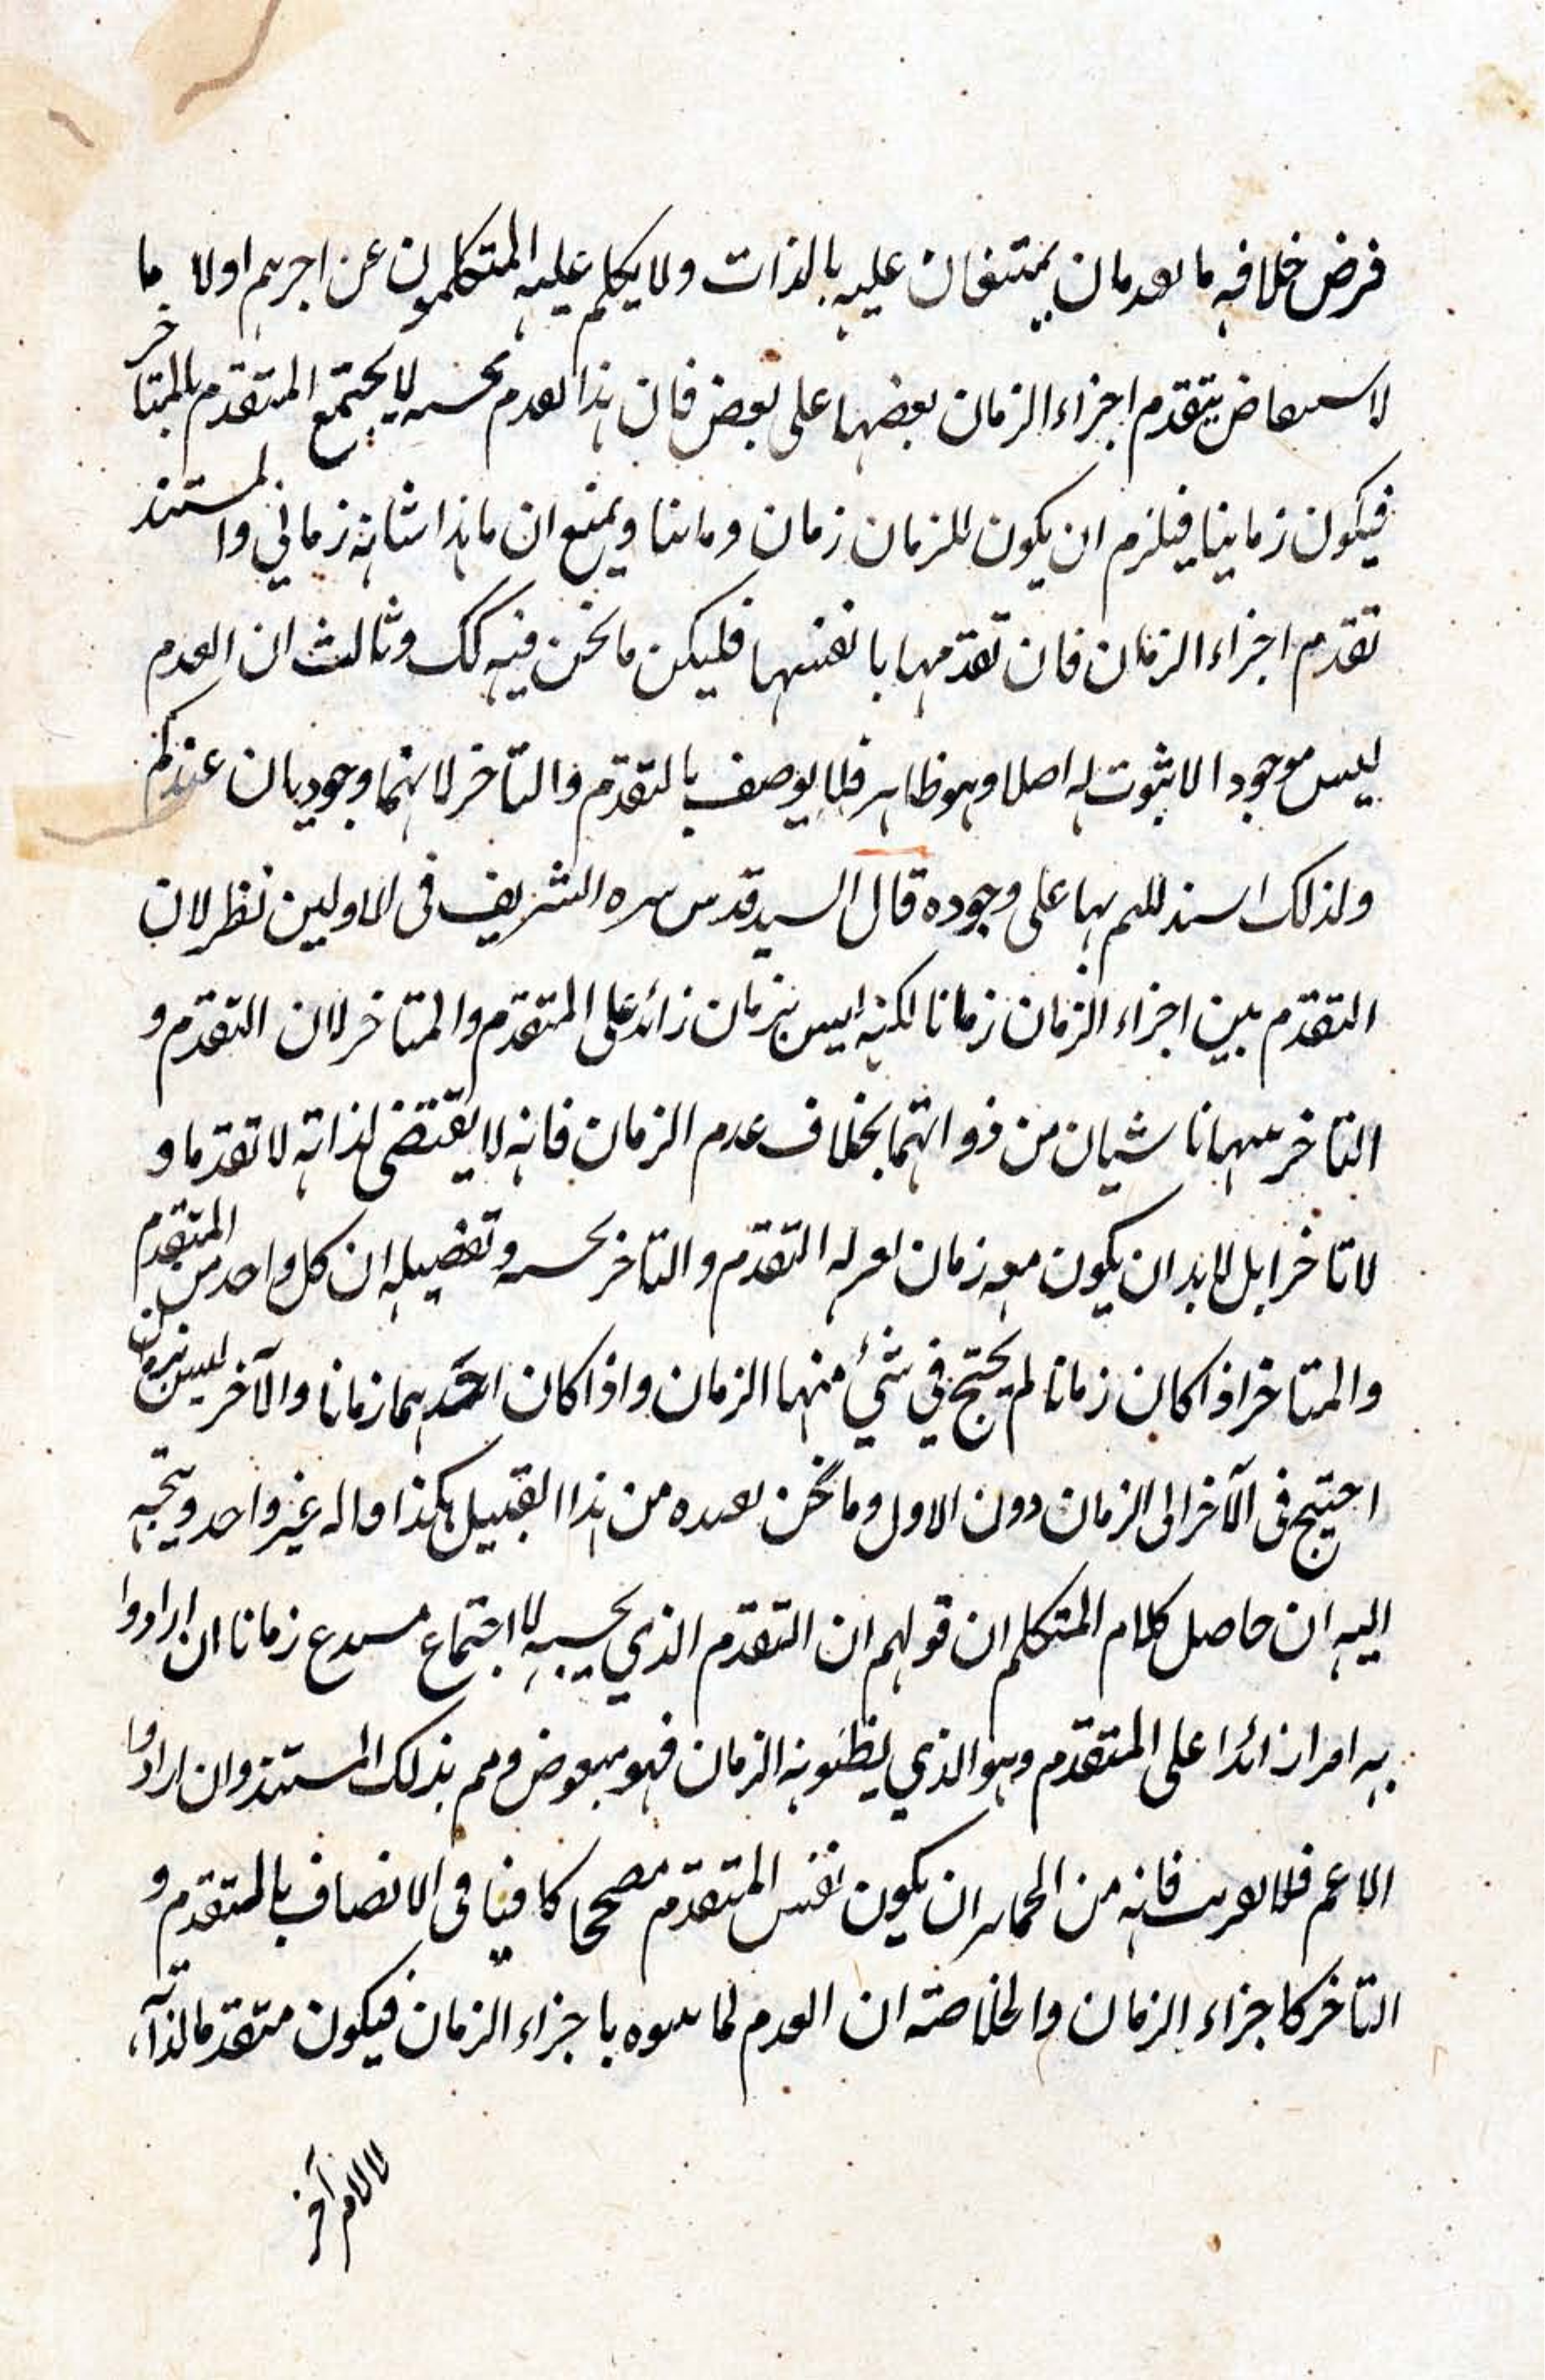 فرض خلافه ما بعدمان يمتنعان عليه بالذات ولا يكلم عليه المتكلمون عن اخرهم اولا ما
لا تتقدم اجزاء الزمان بعضها على بعض فان هذا العدم بحسبه لا يجتمع المتقدم بالمتاخر
فيكون زمانيا فيلزم ان يكون للزمان زمان وثانيا ويمنع ان ما هذا شانه زماني والمستند
تقدم اجزاء الزمان فان تقدمها بانفسها فليكن ما نحن فيه كك وثالث ان العدم
ليس موجودا لا ثبوت له اصلا وهو ظاهر فلا يوصف بالتقدم والتاخر لانهما وجوديان عندكم
ولذلك استدللتم بها على وجوده قال السيد قدس سره الشريف في الاولين نظر لان
التقدم بين اجزاء الزمان زمانا لكنه ليس بزمان زائد على المتقدم والمتاخر لان التقدم و
التاخر فيها ناشيان من ذواتهما بخلاف عدم الزمان فانه لا يقتضي لذاته لا تقدما و
لا تاخرا بل لا بد ان يكون معه زمان التقدم والتاخر بحسبه وتفصيله ان كل واحد من المتقدم
والمتاخر اذا كان زمانا لم يحتج في شيء منهما الزمان واذا كان احدهما زمانا والآخر ليس بزمان
احتيج في الآخر الى الزمان دون الاول وما نحن بصدده من هذا القبيل هكذا قاله غير واحد ويتجه
اليه ان حاصل كلام المتكلم ان قولهم ان التقدم الذي بحسبه لا اجتماع زمانا ان ارادوا
به امرا زائدا على المتقدم وهو الذي يظنونه الزمان فهو ومم بذلك المستند وان ارادوا
الاعم فلا فانه من ان يكون نفس المتقدم مصححا كافيا في الاتصاف بالمتقدم و
التاخر كاجزاء الزمان والخلاصة ان العدم لما باجزاء الزمان فيكون متقدما لذاته
لا لامر آخر